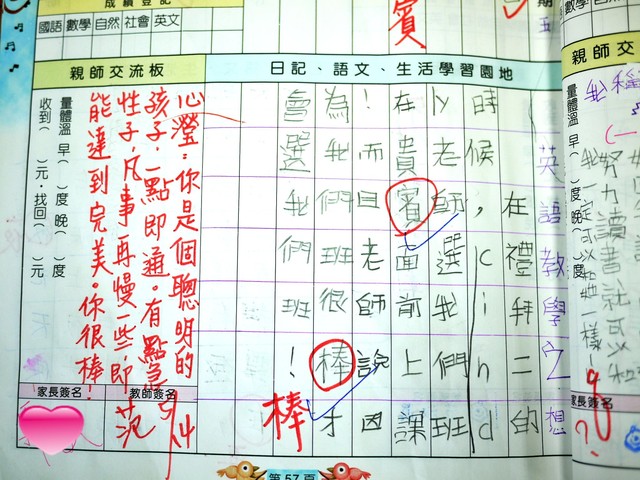 成績登記
國語 數學 自然 社會 英文
賓
期
五
親師交流板
日記、語文、生活學習園地
英語教學之想
在禮拜二的
時候，cind
ly老師選我們班
在貴賓面前上課
！而且老師說因
為我們班很棒才
會選我們班！
棒
心瀅：你是個聰明的
孩子，一點即通。有點急
性子，凡事再慢一些，即
能達到完美。你很棒！
量體溫 早（ ）度晚（ ）度
收到（ ）元‧找回（ ）元
家長簽名
教師簽名
范 5/14
第57頁
親師交
量體溫 早（ ）度晚（ ）度
努力讀書就可以
我一定可以和她一樣！
家長簽名